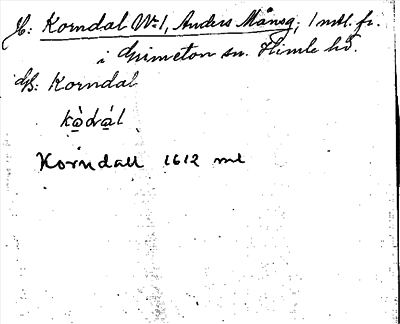 H: Korndal No 1, Anders Månsg, 1 mtl. fr.
i Grimeton sn. Himle hd.
Korndal
kò̱dá̱l
Korndall 1612 ml